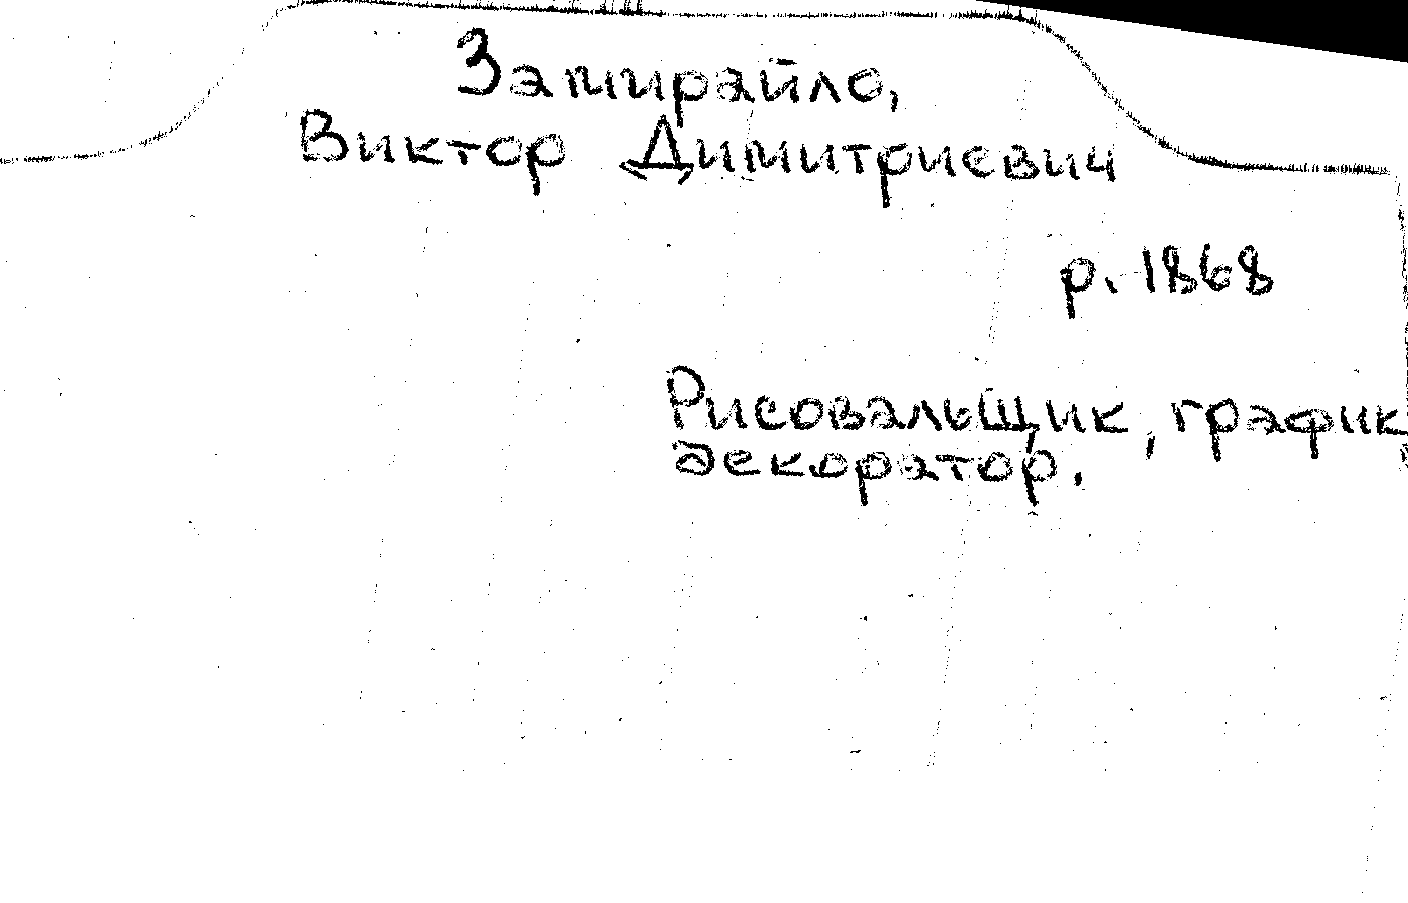 Замирайло,
Виктор Димитриевич
р. 1868
Рисовальщик, график,
декоратор.